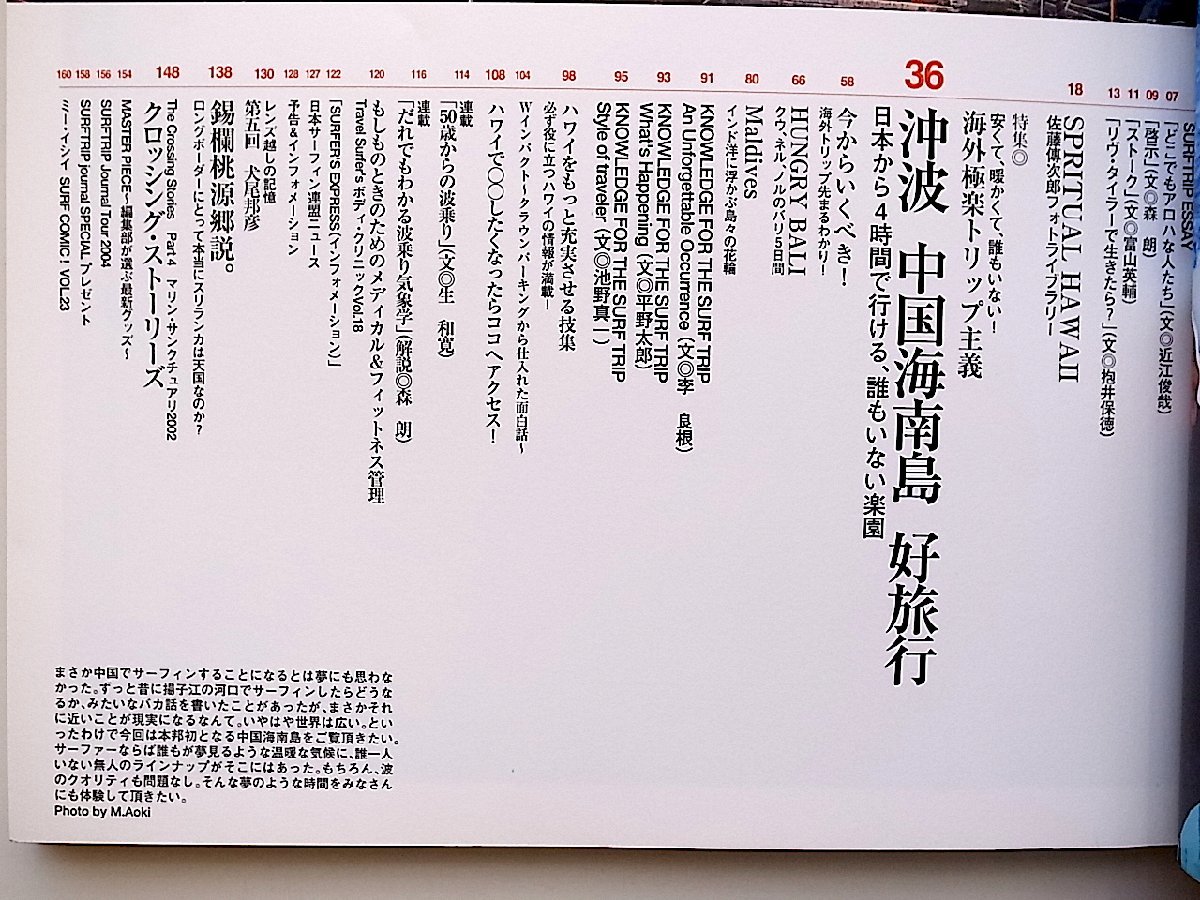 SURFTRIP ESSAY
07
「どこでもアロハな人たち」(文◎近江俊哉)
09
「啓示」(文◎森 朗)
11
「ストーク」(文◎富山英輔)
13
「リヴ・タイラーで生きたら?」(文◎抱井保徳)
18
SPRITUAL HAWAII
佐藤傳次郎フォトライブラリー
特集◎
安くて、暖かくて、誰もいない!
海外極楽トリップ主義
36
沖波 中国海南島 好旅行
日本から4時間で行ける、誰もいない楽園
58
今からいくべき!
海外トリップ先まるわかり!
66
HUNGRY BALI
クウ、ネル、ノルのバリ5日間
80
Maldives
インド洋に浮かぶ島々の花輪
91
KNOWLEDGE FOR THE SURF TRIP
An Unforgettable Occurrence (文◎李 良根)
93
KNOWLEDGE FOR THE SURF TRIP
What's Happening (文◎平野太郎)
95
KNOWLEDGE FOR THE SURF TRIP
Style of traveler (文◎池野真一)
98
ハワイをもっと充実させる技集
必ず役に立つハワイの情報が満載ー
104
Wインパクト〜クラウンパーキングから仕入れた面白話〜
108
ハワイで〇〇したくなったらココへアクセス!
114
連載
「50歳からの波乗り」(文◎生 和寛)
116
連載
「だれでもわかる波乗り気象学」(解説◎森 朗)
120
もしものときのためのメディカル&フィットネス管理
Travel Surfer's ボディ・クリニックVol.18
122
「SURFER'S EXPRESS(インフォメーション)」
127
日本サーフィン連盟ニュース
128
予告&インフォメーション
130
レンズ越しの記憶
第五回 犬尾邦彦
138
錫欄桃源郷説。
ロングボーダーにとって本当にスリランカは天国なのか?
148
The Crossing Stories Part4 マリン・サンクチュアリ2002
クロッシング・ストーリーズ
154
MASTER PIECE〜編集部が選ぶ最新グッズ〜
156
SURFTRIP Journal Tour 2004
158
SURFTRIP journal SPECIAL プレゼント
160
ミー・インイ SURF COMIC! VOL.23
まさか中国でサーフィンすることになるとは夢にも思わな
かった。ずっと昔に揚子江の河口でサーフィンしたらどうな
るか、みたいなバカ話を書いたことがあったが、まさかそれ
に近いことが現実になるなんて。いやはや世界は広い。とい
ったわけで今回は本邦初となる中国海南島をご覧頂きたい。
サーファーならば誰もが夢見るような温暖な気候に、誰一人
いない無人のラインナップがそこにはあった。もちろん、波
のクオリティも問題なし。そんな夢のような時間をみなさん
にも体験して頂きたい。
Photo by M.Aoki